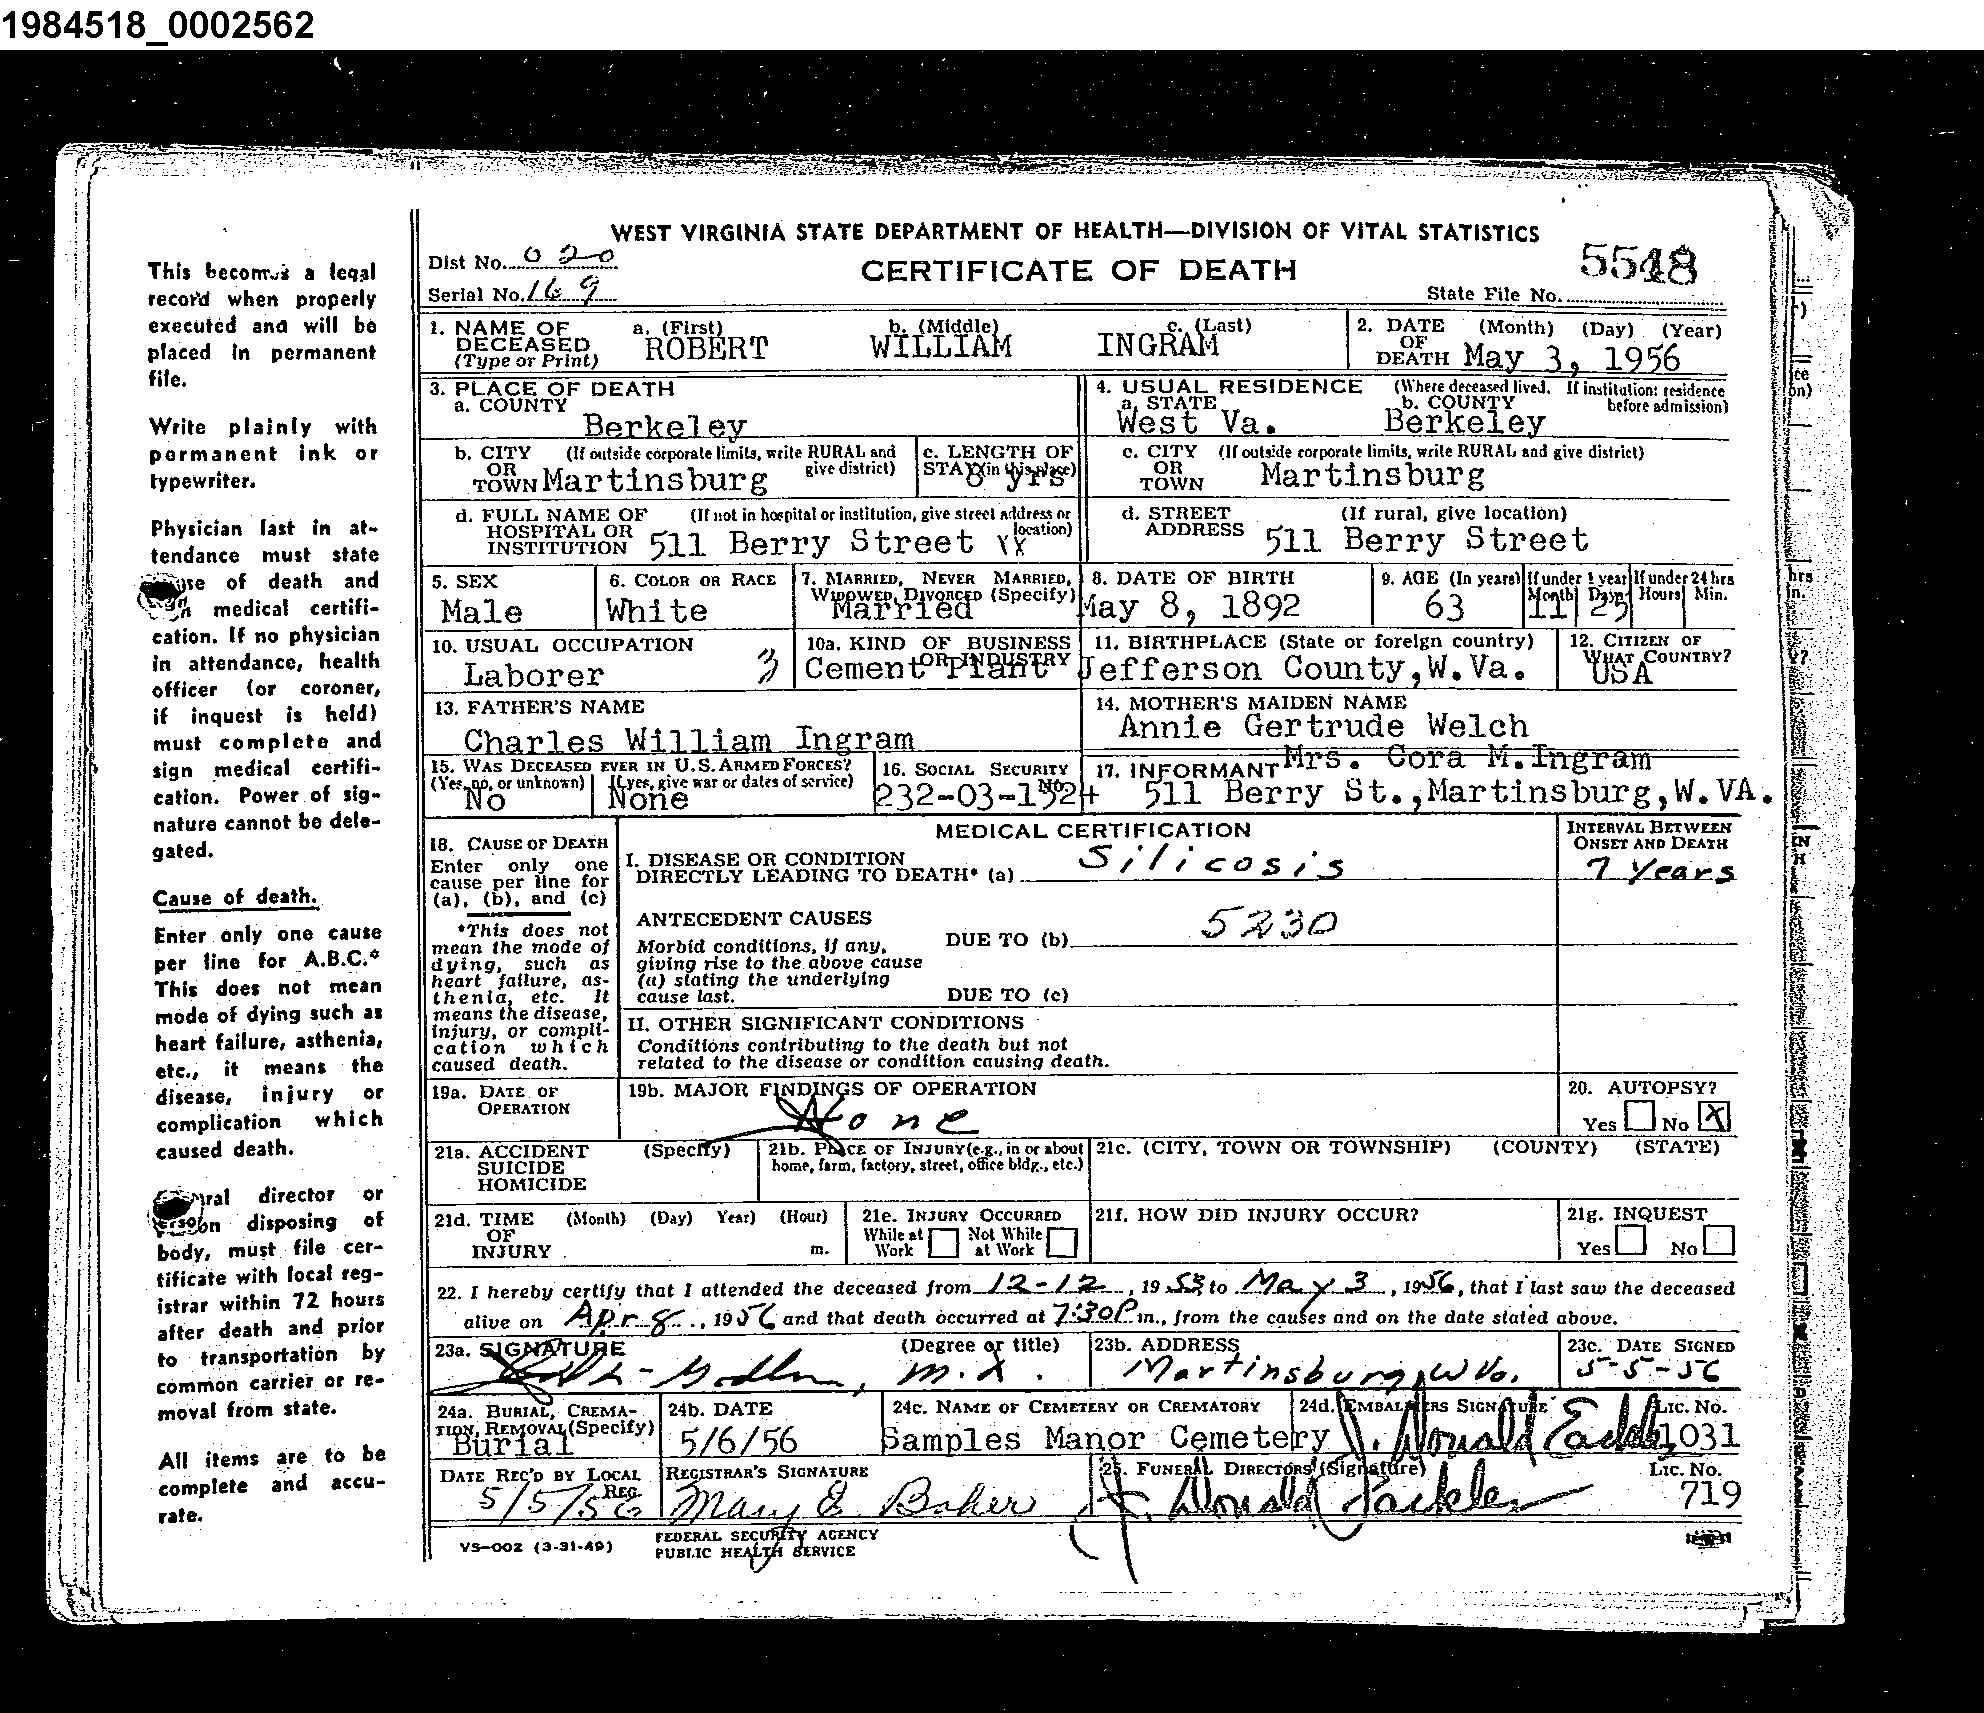 1984518_0002562
WEST VIRGINIA STATE DEPARTMENT OF HEALTH—DIVISION OF VITAL STATISTICS
Dist No. 020
CERTIFICATE OF DEATH
5548
Serial No. 169
State File No.
This becomes a legal
record when properly
executed and will be
placed in permanent
file.
Write plainly with
permanent ink or
typewriter.
Physician last in at-
tendance must state
of death and
medical certifi-
cation. If no physician
in attendance, health
officer (or coroner,
if inquest is held)
must complete and
sign medical certifi-
cation. Power of sig-
nature cannot be dele-
gated.
Cause of death.
Enter only one cause
per line for A.B.C.*
This does not mean
mode of dying such as
heart failure, asthenia,
etc., it means the
disease, injury or
complication which
caused death.
director or
disposing of
body, must file cer-
tificate with local reg-
istrar within 72 hours
after death and prior
to transportation by
common carrier or re-
moval from state.
All items are to be
complete and accu-
rate.
1. NAME OF DECEASED (Type or Print) a. (First) ROBERT b. (Middle) WILLIAM c. (Last) INGRAM
2. DATE OF DEATH (Month) (Day) (Year) May 3, 1956
3. PLACE OF DEATH
a. COUNTY Berkeley
4. USUAL RESIDENCE (Where deceased lived. If institution: residence before admission)
a. STATE West Va. b. COUNTY Berkeley
b. CITY OR TOWN (If outside corporate limits, write RURAL and give district) Martinsburg
c. LENGTH OF STAY (in this place) 8 yrs
c. CITY OR TOWN (If outside corporate limits, write RURAL and give district) Martinsburg
d. FULL NAME OF HOSPITAL OR INSTITUTION (If not in hospital or institution, give street address or location) 511 Berry Street
d. STREET ADDRESS (If rural, give location) 511 Berry Street
5. SEX Male
6. COLOR OR RACE White
7. MARRIED, NEVER MARRIED, WIDOWED, DIVORCED (Specify) Married
8. DATE OF BIRTH May 8, 1892
9. AGE (In years) 63 If under 1 year Month 11 Days 25 If under 24 hrs Hours Min.
10. USUAL OCCUPATION Laborer 3
10a. KIND OF BUSINESS OR INDUSTRY Cement Plant
11. BIRTHPLACE (State or foreign country) Jefferson County,W.Va.
12. CITIZEN OF WHAT COUNTRY? USA
13. FATHER'S NAME
Charles William Ingram
14. MOTHER'S MAIDEN NAME
Annie Gertrude Welch
15. WAS DECEASED EVER IN U.S. ARMED FORCES?
(Yes, no, or unknown) No (If yes, give war or dates of service) None
16. SOCIAL SECURITY No.
17. INFORMANT Mrs. Cora M.Ingram
511 Berry St.,Martinsburg,W.VA.
18. CAUSE OF DEATH
Enter only one
cause per line for
(a), (b), and (c)
*This does not
mean the mode of
dying, such as
heart failure, as-
thenia, etc. It
means the disease,
injury, or compli-
cation which
caused death.
MEDICAL CERTIFICATION
INTERVAL BETWEEN
ONSET AND DEATH
I. DISEASE OR CONDITION
DIRECTLY LEADING TO DEATH* (a) Silicosis 7 Years
ANTECEDENT CAUSES 5230
Morbid conditions, if any,
giving rise to the above cause
(a) stating the underlying
cause last.
DUE TO (b)
DUE TO (c)
II. OTHER SIGNIFICANT CONDITIONS
Conditions contributing to the death but not
related to the disease or condition causing death.
19a. DATE OF OPERATION
19b. MAJOR FINDINGS OF OPERATION
None
20. AUTOPSY?
Yes No X
21a. ACCIDENT SUICIDE HOMICIDE (Specify)
21b. PLACE OF INJURY (e.g., in or about
home, farm, factory, street, office bldg., etc.)
21c. (CITY, TOWN OR TOWNSHIP) (COUNTY) (STATE)
21d. TIME OF INJURY (Month) (Day) Year) (Hour) m.
21e. INJURY OCCURRED
While at Work Not While at Work
21f. HOW DID INJURY OCCUR?
21g. INQUEST
Yes No
22. I hereby certify that I attended the deceased from 12-12, 1953 to May 3, 1956, that I last saw the deceased
alive on Apr 8, 1956 and that death occurred at 7:30P m., from the causes and on the date stated above.
23a. SIGNATURE (Degree or title) M.D.
23b. ADDRESS Martinsburg, W Va.
23c. DATE SIGNED 5-5-56
24a. BURIAL, CREMATION, REMOVAL (Specify) Burial
24b. DATE 5/6/56
24c. NAME OF CEMETERY OR CREMATORY Samples Manor Cemetery
24d. EMBALMERS SIGNATURE J. Donald Eackles LIC. NO. 1031
DATE REC'D BY LOCAL REG. 5/5/56
REGISTRAR'S SIGNATURE Mary E Baker
25. FUNERAL DIRECTORS (Signature) J. Donald Eackles LIC. NO. 719
VS-002 (3-31-49)
FEDERAL SECURITY AGENCY
PUBLIC HEALTH SERVICE